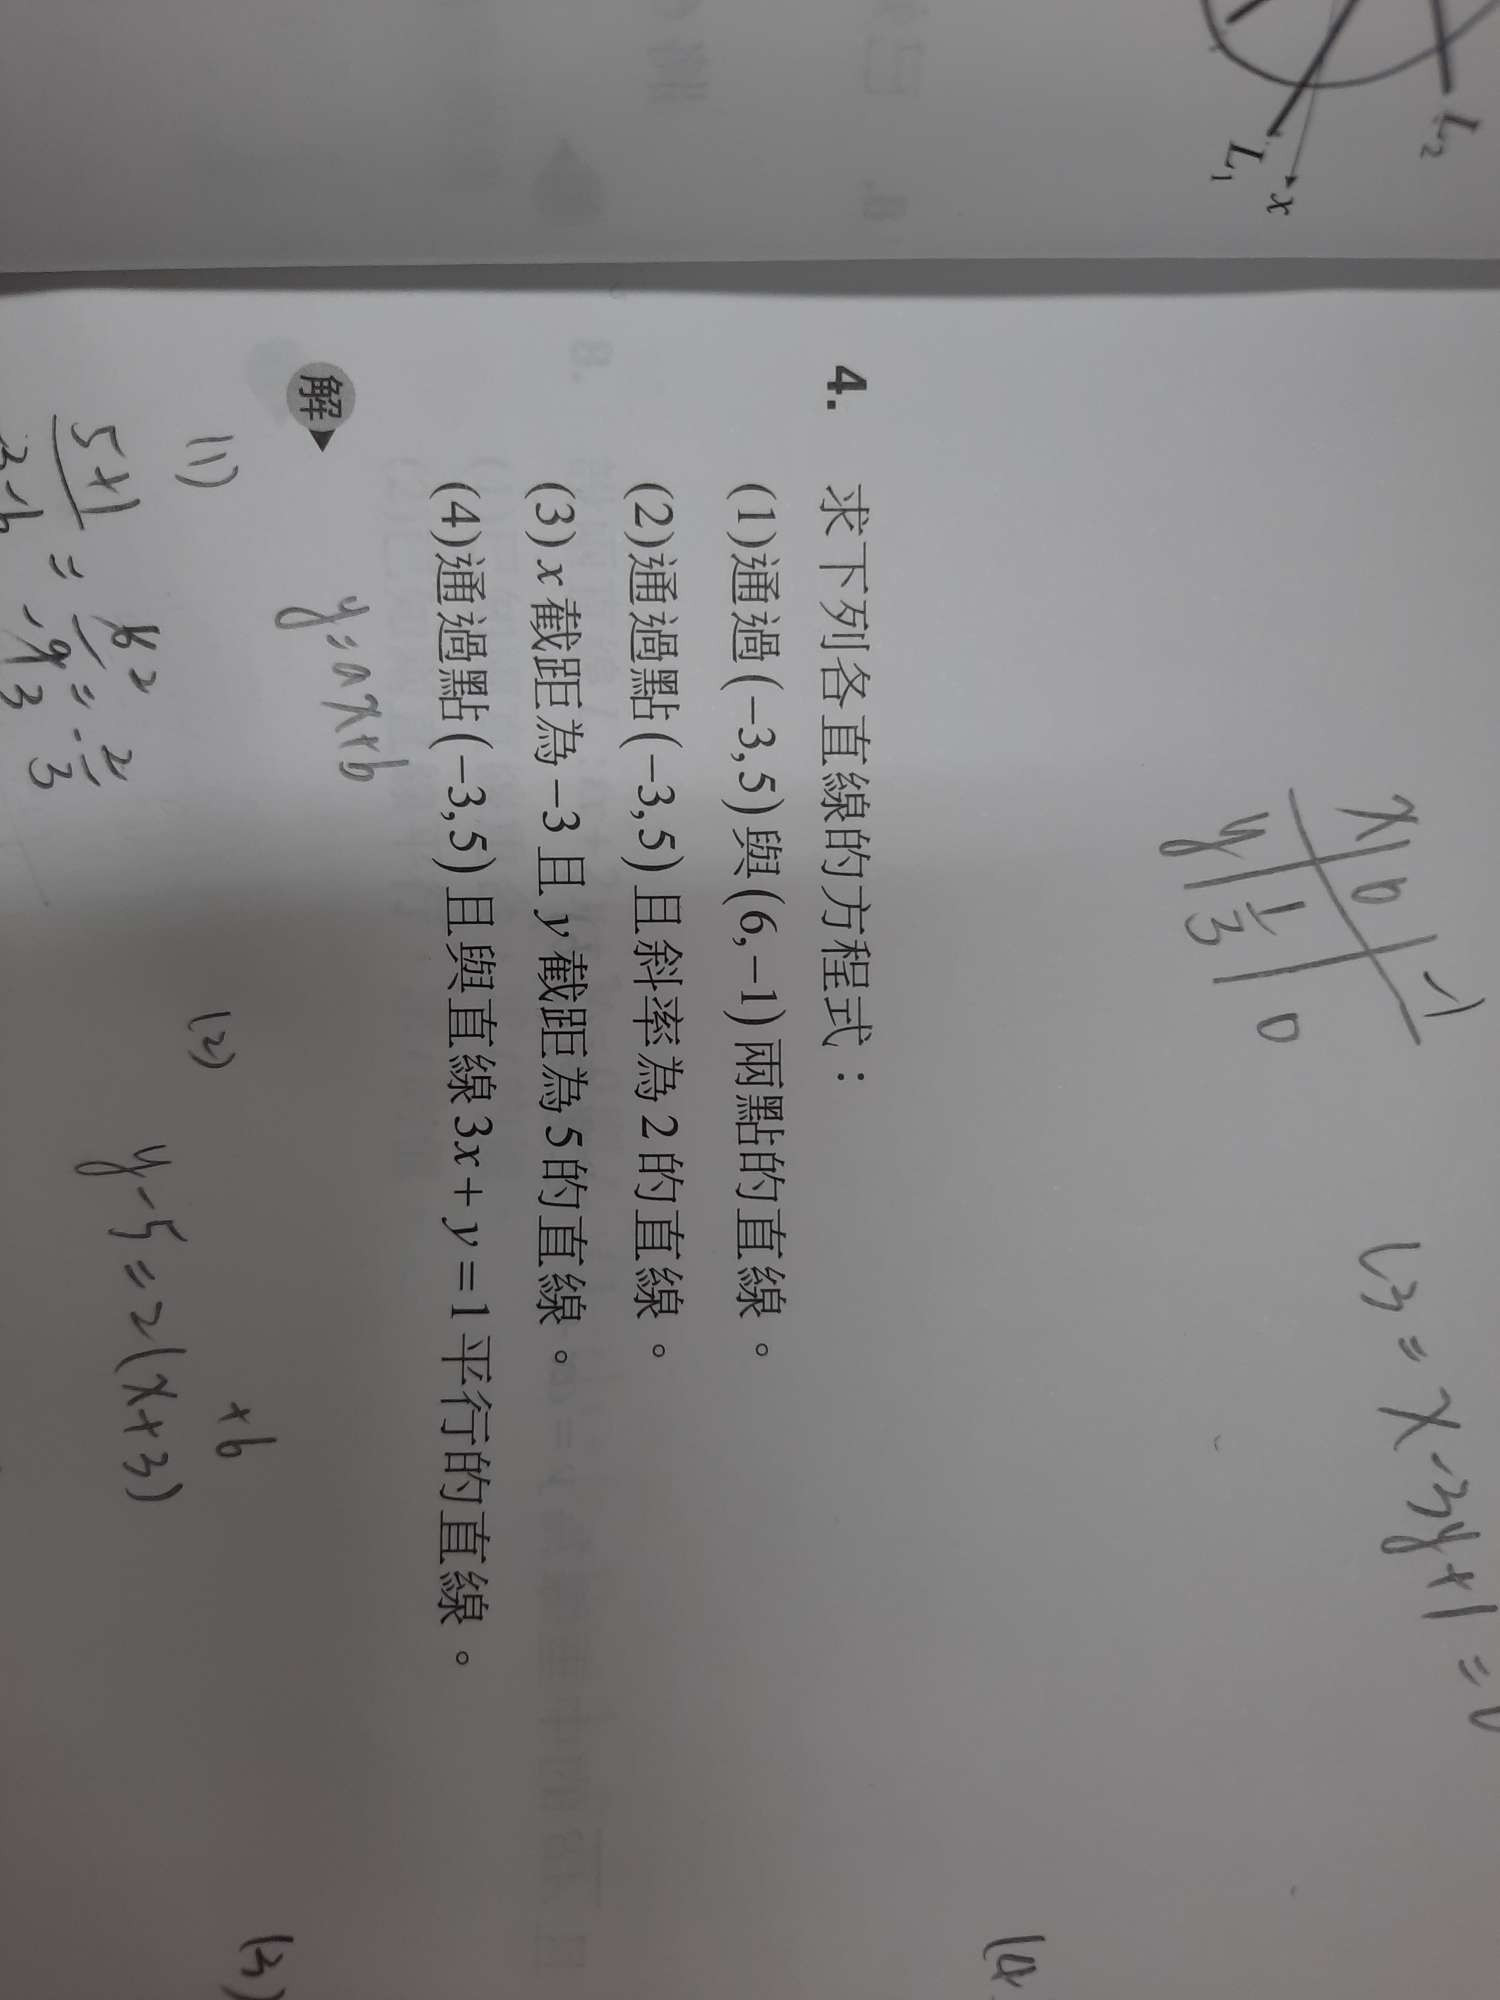 L₂
L₁
x
x 0 -1
y 1/3 0
L3 = x-3y+1=0
4. 求下列各直線的方程式：
(1)通過(−3,5)與(6,−1)兩點的直線。
(2)通過點(−3,5)且斜率為2的直線。
(3)x截距為−3且y截距為5的直線。
(4)通過點(−3,5)且與直線3x+y=1平行的直線。
解
y=ax+b
(1)
5+1
(2)
+6
y-5=2(x+3)
(3)
(4